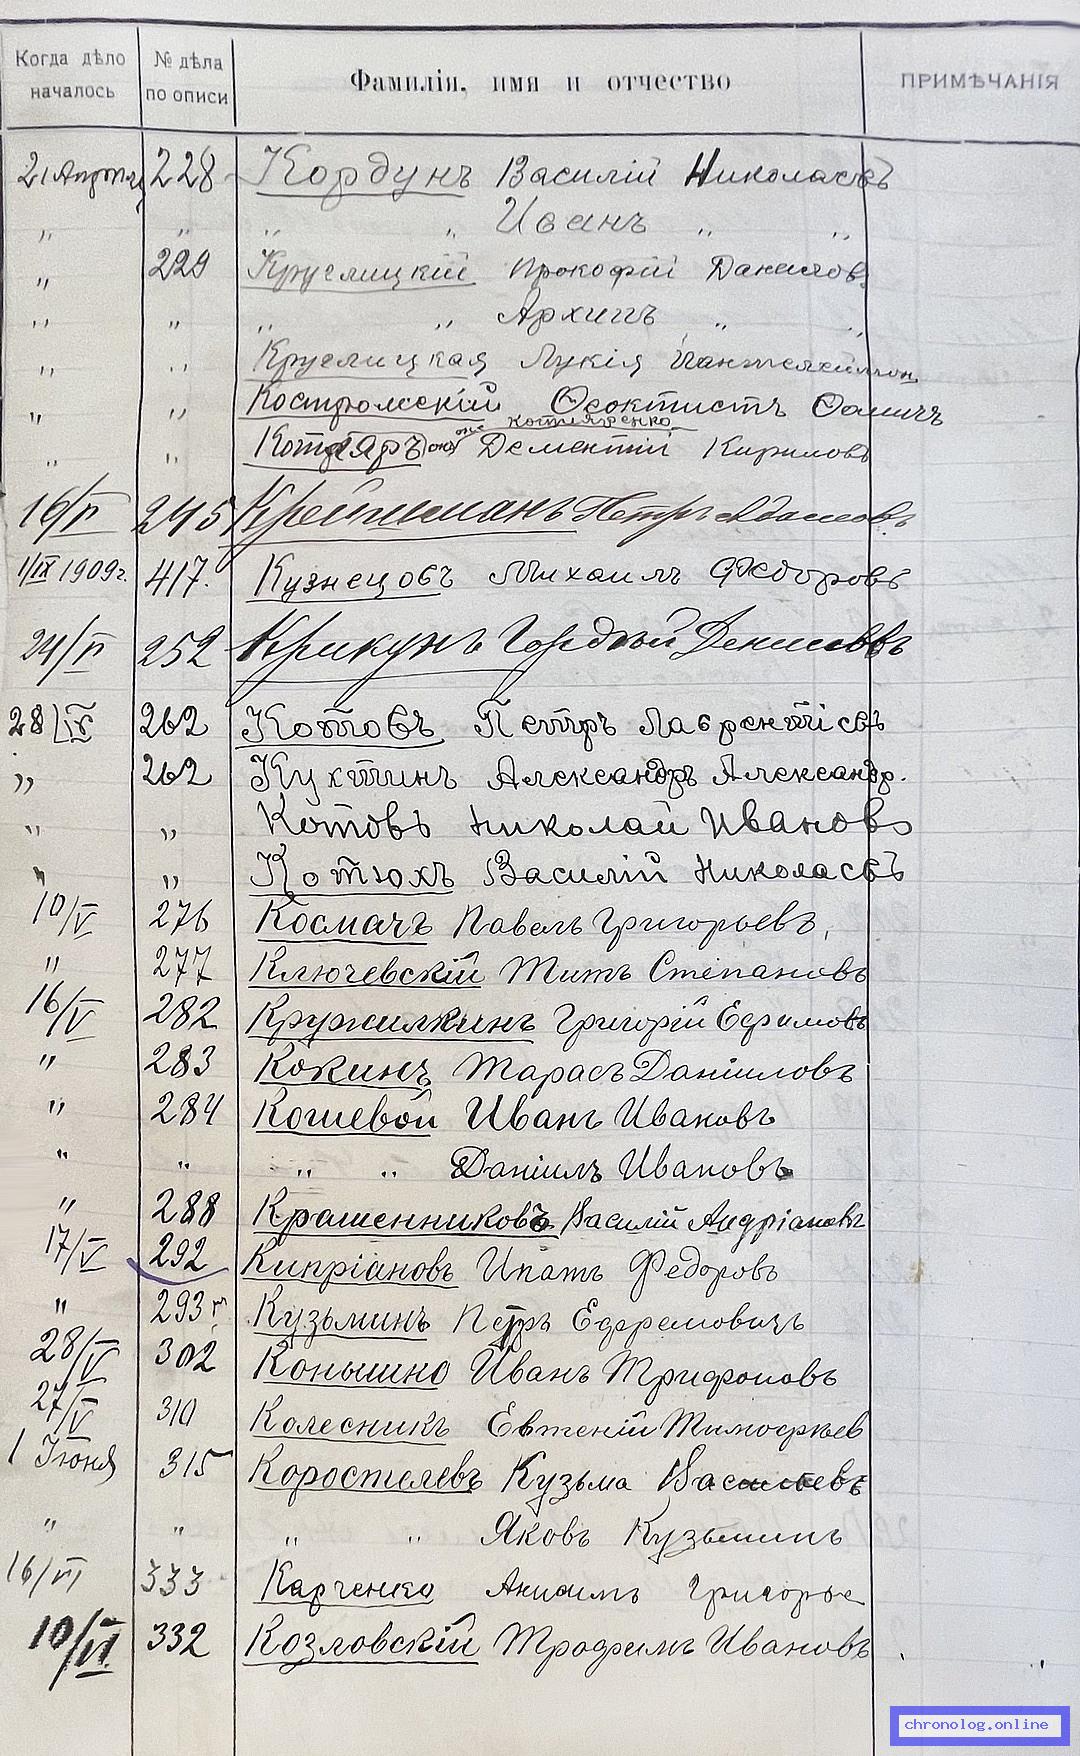 Когда дѣло началось № дѣла по описи Фамилія, имя и отчество ПРИМѢЧАНІЯ
21 Апрѣля 228 Кордунъ Василій Николаевъ
" " " " Иванъ " "
" 229 Круглицкій Прокофій Данилов.
" " " " Архипъ " "
" " Круглицкая Лукія Пантелеймон.
" " Костромскій Ѳеоктистъ Ѳомичъ
онъ же Котляренко
" " Котляръ Дементій Кириловъ
16/IV 245 Крейцманъ Петръ Адамовъ
1/IX 1909 г. 417. Кузнецовъ Михаилъ Ѳедоровъ
24/IV 252 Крикунъ Гордѣй Денисовъ
28/IV 262 Котовъ Петръ Лаврентіевъ
" 262 Куктинъ Александръ Александр.
" " Котовъ Николай Ивановъ
" " Котюхъ Василій Николаевъ
10/V 276 Космачъ Павелъ Григорьевъ,
" 277 Ключевскій Титъ Степановъ
16/V 282 Кружилкинъ Григорій Ефимовъ
" 283 Кокинъ Тарасъ Даніиловъ
" 284 Кошевой Иванъ Ивановъ
" " " " Даніилъ Ивановъ
" 288 Крашенниковъ Василій Андріановъ
17/V 292 Кипріановъ Ипатъ Федоровъ
" 293 Кузьминъ Петръ Ефремовичъ
28/V 302 Коньшино Иванъ Трифоновъ
27/V 310 Колесникъ Евгеній Тимофѣев
1 Іюня 315 Коростелевъ Кузьма Васильевъ
" " " " Яковъ Кузьминъ
16/VI 333 Карченко Анисимъ Григорье
10/VI 332 Козловскій Трофимъ Ивановъ
chronolog.online